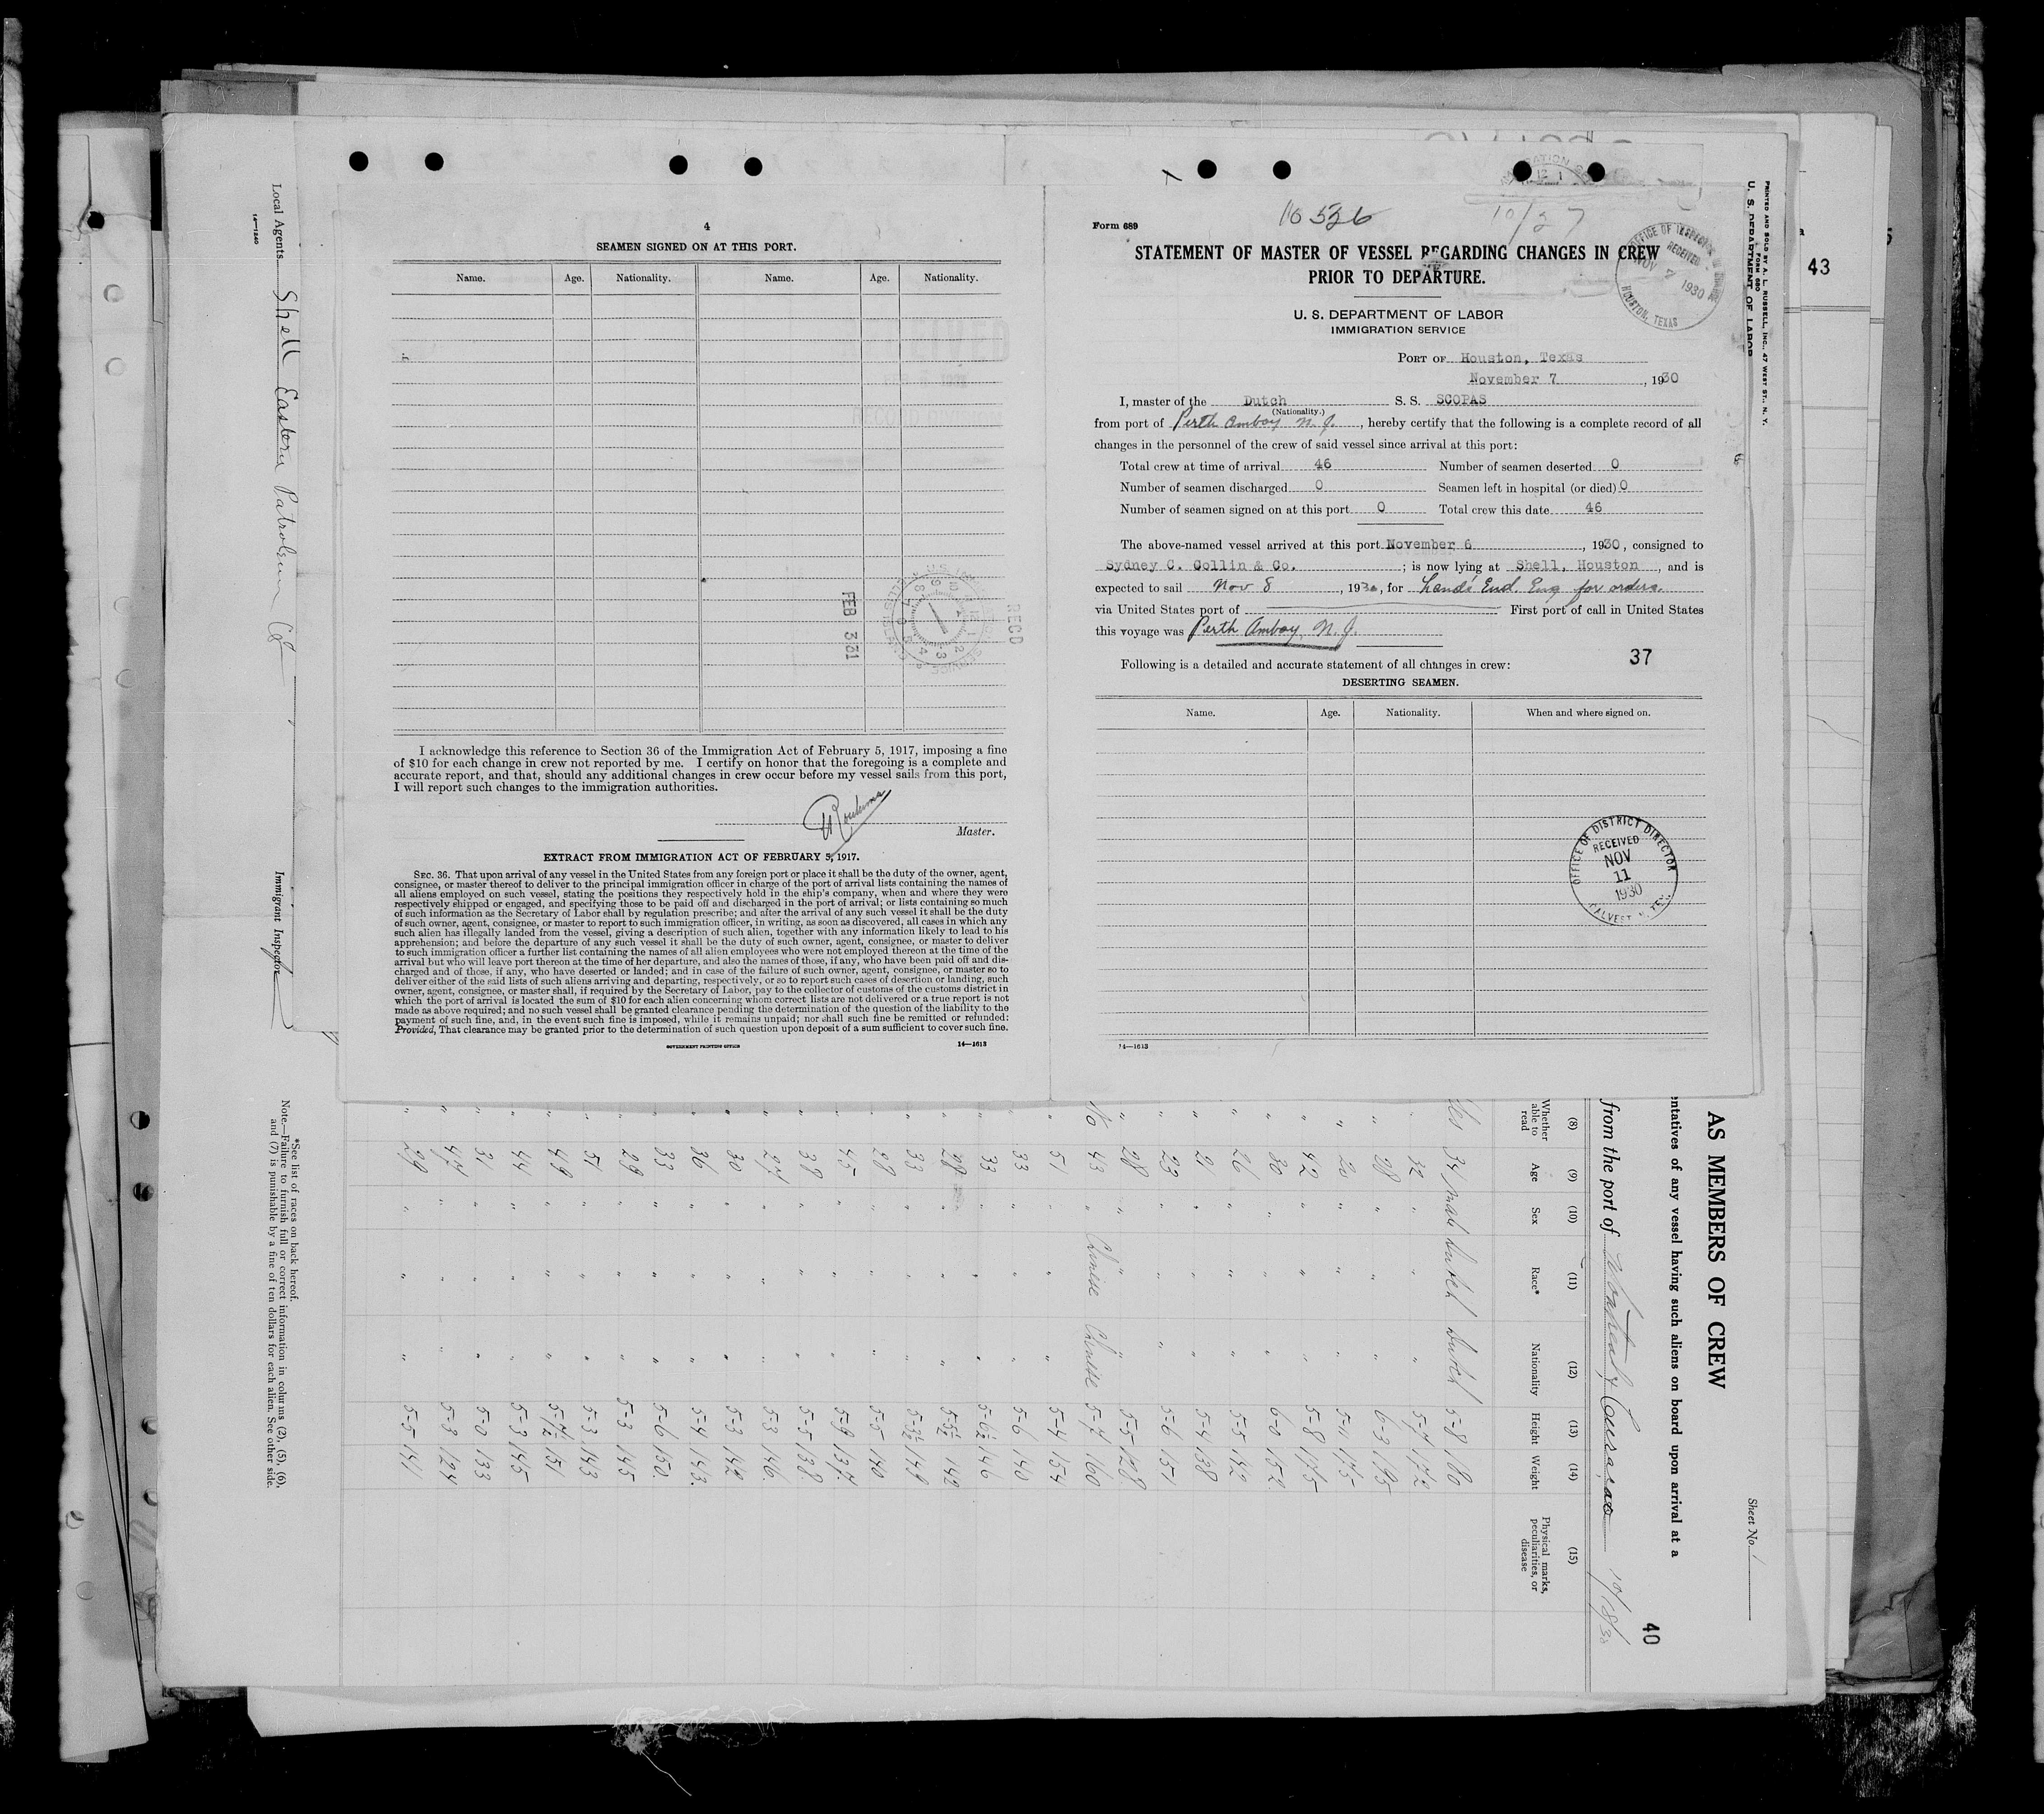 4
SEAMEN SIGNED ON AT THIS PORT.
Name. Age. Nationality. Name. Age. Nationality.
FEB 3 31
RECD
I acknowledge this reference to Section 36 of the Immigration Act of February 5, 1917, imposing a fine
of $10 for each change in crew not reported by me. I certify on honor that the foregoing is a complete and
accurate report, and that, should any additional changes in crew occur before my vessel sails from this port,
I will report such changes to the immigration authorities.
Master.
EXTRACT FROM IMMIGRATION ACT OF FEBRUARY 5, 1917.
SEC. 36. That upon arrival of any vessel in the United States from any foreign port or place it shall be the duty of the owner, agent,
consignee, or master thereof to deliver to the principal immigration officer in charge of the port of arrival lists containing the names of
all aliens employed on such vessel, stating the positions they respectively hold in the ship's company, when and where they were
respectively shipped or engaged, and specifying those to be paid off and discharged in the port of arrival; or lists containing so much
of such information as the Secretary of Labor shall by regulation prescribe; and after the arrival of any such vessel it shall be the duty
of such owner, agent, consignee, or master to report to such immigration officer, in writing, as soon as discovered, all cases in which any
such alien has illegally landed from the vessel, giving a description of such alien, together with any information likely to lead to his
apprehension; and before the departure of any such vessel it shall be the duty of such owner, agent, consignee, or master to deliver
to such immigration officer a further list containing the names of all alien employees who were not employed thereon at the time of the
arrival but who will leave port thereon at the time of her departure, and also the names of those, if any, who have been paid off and dis-
charged and of those, if any, who have deserted or landed; and in case of the failure of such owner, agent, consignee, or master so to
deliver either of the said lists of such aliens arriving and departing, respectively, or so to report such cases of desertion or landing, such
owner, agent, consignee, or master shall, if required by the Secretary of Labor, pay to the collector of customs of the customs district in
which the port of arrival is located the sum of $10 for each alien concerning whom correct lists are not delivered or a true report is not
made as above required; and no such vessel shall be granted clearance pending the determination of the question of the liability to the
payment of such fine, and, in the event such fine is imposed, while it remains unpaid; nor shall such fine be remitted or refunded:
Provided, That clearance may be granted prior to the determination of such question upon deposit of a sum sufficient to cover such fine.
GOVERNMENT PRINTING OFFICE 14—1613
10526
10/27
Form 689
STATEMENT OF MASTER OF VESSEL REGARDING CHANGES IN CREW
PRIOR TO DEPARTURE.
U. S. DEPARTMENT OF LABOR
IMMIGRATION SERVICE
RECEIVED
NOV 7 1930
HOUSTON, TEXAS
PORT OF Houston, Texas
November 7, 1930
I, master of the Dutch S. S. SCOPAS
(Nationality.)
from port of Perth Amboy N. J., hereby certify that the following is a complete record of all
changes in the personnel of the crew of said vessel since arrival at this port:
Total crew at time of arrival 46 Number of seamen deserted 0
Number of seamen discharged 0 Seamen left in hospital (or died) 0
Number of seamen signed on at this port 0 Total crew this date 46
The above-named vessel arrived at this port November 6, 1930, consigned to
Sydney C. Collin & Co.; is now lying at Shell, Houston, and is
expected to sail Nov 8, 1930, for Land's End. Eng for orders.
via United States port of First port of call in United States
this voyage was Perth Amboy, N. J.
37
Following is a detailed and accurate statement of all changes in crew:
DESERTING SEAMEN.
Name. Age. Nationality. When and where signed on.
OFFICE OF DISTRICT DIRECTOR
RECEIVED
NOV
11
1930
14—1613
43
PRINTED AND SOLD BY A. L. RUSSELL, INC., 47 WEST ST., N. Y.
FORM 680
U. S. DEPARTMENT OF LABOR
Sheet No. 1
AS MEMBERS OF CREW
ntatives of any vessel having such aliens on board upon arrival at a
40
from the port of Curacao 10/18/30
(8) (9) (10) (11) (12) (13) (14) (15)
Whether able to read Age Sex Race* Nationality Height Weight Physical marks, peculiarities, or disease
34 male Dutch Dutch 5-8 180
32 " " " 5-7 172
" 28 " " " 6-3 195
" 20 " " " 5-11 175
" 42 " " " 5-8 175
" 30 " " " 6-0 152
" 26 " " " 5-5 142
" 21 " " " 5-4 138
" 23 " " " 5-6 151
" 28 " " " 5-5 128
No 43 " Chinese Chinese 5-7 160
" 51 " " " 5-4 154
" 33 " " " 5-6 140
" 33 " " " 5-6½ 146
" 28 " " " 5-5½ 142
" 33 " " " 5-3½ 149
" 28 " " " 5-5 140
" 45 " " " 5-9 137
" 38 " " " 5-5 138
" 27 " " " 5-3 146
" 30 " " " 5-3 142
" 36 " " " 5-4 143
" 33 " " " 5-6 150
" 29 " " " 5-3 145
" 51 " " " 5-3 143
" 49 " " " 5-7½ 151
" 44 " " " 5-3 145
" 31 " " " 5-0 133
" 47 " " " 5-3 124
" 29 " " " 5-5 141
*See list of races on back hereof.
Note.—Failure to furnish full or correct information in columns (2), (5), (6),
and (7) is punishable by a fine of ten dollars for each alien. See other side.
Local Agents Shell Eastern Patroleum Co
Immigrant Inspector
14—1240